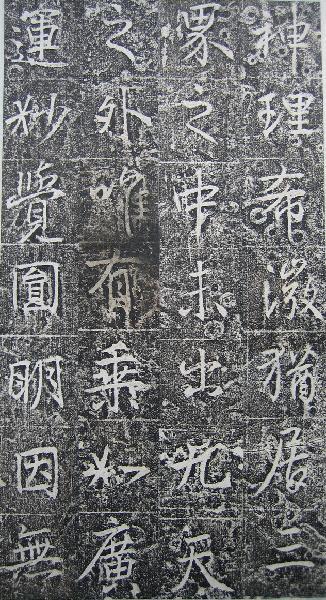 神理希微猶居三
界之中未出九天
之外唯有乘如廣
運妙覺圓明因無